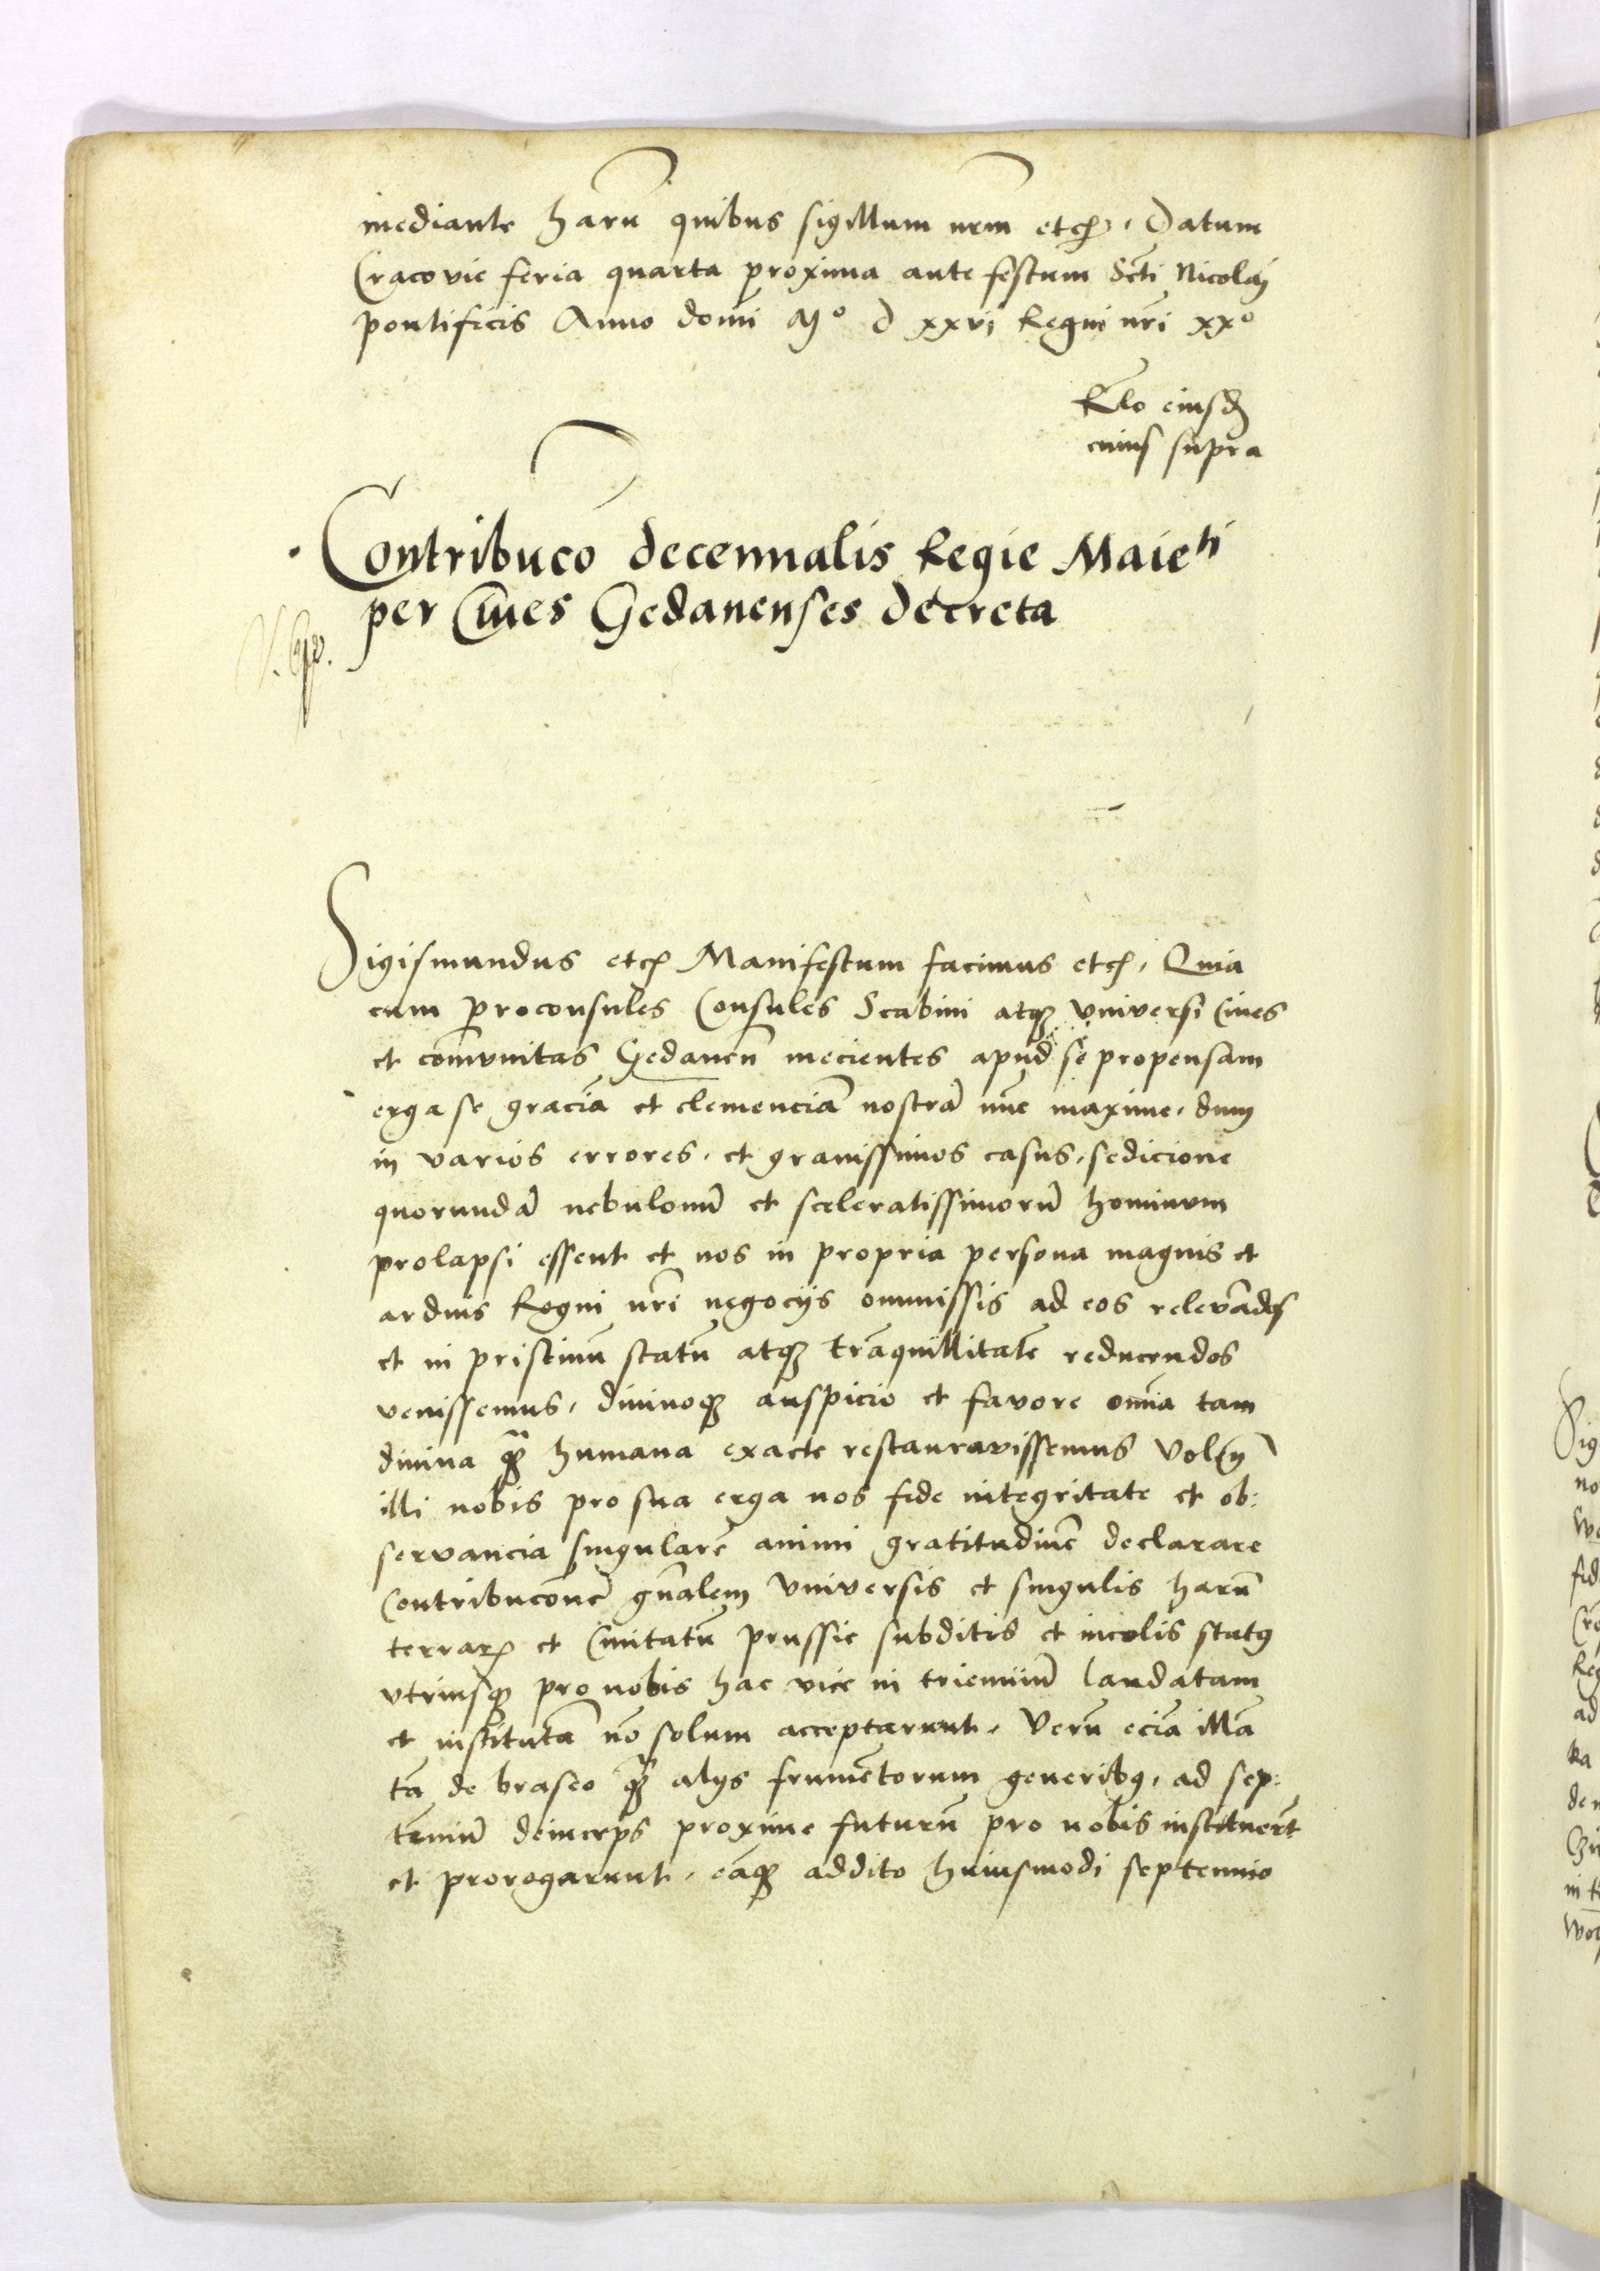 mediante harū quibus sigillum nrm̄ etcᷓ. Datum
Cracovie feria quarta proxima ante festum Scti Nicolaj
pontificis Anno domī Mº d xxvj Regni nr̄i xxº
Rlo eiusđ
cuius supra
Contribucō decennalis Regie Maieᵗⁱ
per Ciues Gedanenses decreta
Sigismundus etcᷓ Manifestum facimus etcᷓ. Quia
cum proconsules Consules Scabini atqꝫ vniversi Ciues
et com̄vnitas Gedanen̄ mecientes apud se propensam
erga se graciā et clemenciā nostrā nūc maxime. dum
in varios errores. et grauissimos casus. sedicione
quorundā nebulonū et sceleratissimorū hominum
prolapsi essent et nos in propria persona magnis et
arduis Regni nr̄i negocijs ommissis ad eos relevādos
et in pristinū statū atqꝫ trāquillitatē reducendos
venissemus. diuinoqꝫ auspicio et favore om̄ia tam
diuina qꝫ̄ humana exacte restauravissemus Volen̄
illi nobis pro sua erga nos fide integritate et ob:
servancia singularē animi gratitudinē declarare
Contribucōnē gn̄alem Vniversis et singulis harū
terrarꝝ et Ciuitatū prussie subditis et incolis statꝰ
vtriusqꝫ pro nobis hac vice in trienniū laudatam
et institutā nō solum acceptarunt. Verū eciā illā
tā de braseo qꝫ̄ alijs frumētorum generibꝰ. ad sep:
tenniū deinceps proxime futurū pro nobis instituerūt
et prorogarunt. eāqꝫ addito huiusmodi septennio